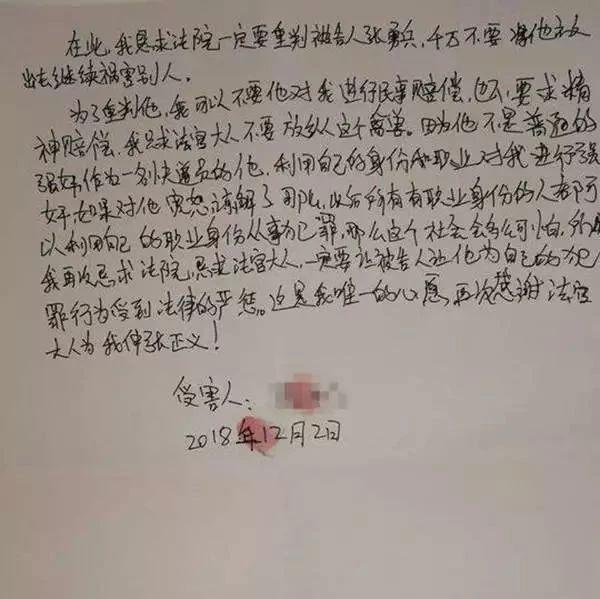 在此,我恳求法院一定要重判被告人张勇兵,千万不要将他放
出去继续祸害别人。
为了重判他,我可以不要他对我进行民事赔偿,也不要求精
神赔偿,我只求法官大人不要放纵这个禽兽。因为他不是普通的
强奸,作为一名快递员的他,利用自己的身份和职业对我进行强
奸,如果对他宽恕谅解了那么,以后所有有职业身份的人都可
以利用自己的职业身份从事犯罪,那么这个社会会多么可怕,
我再次恳求法院,恳求法官大人,一定要让被告人为自己的犯
罪行为受到法律的严惩。这是我唯一的心愿,再次感谢法官
大人为我伸张正义!
受害人:
2018年12月2日